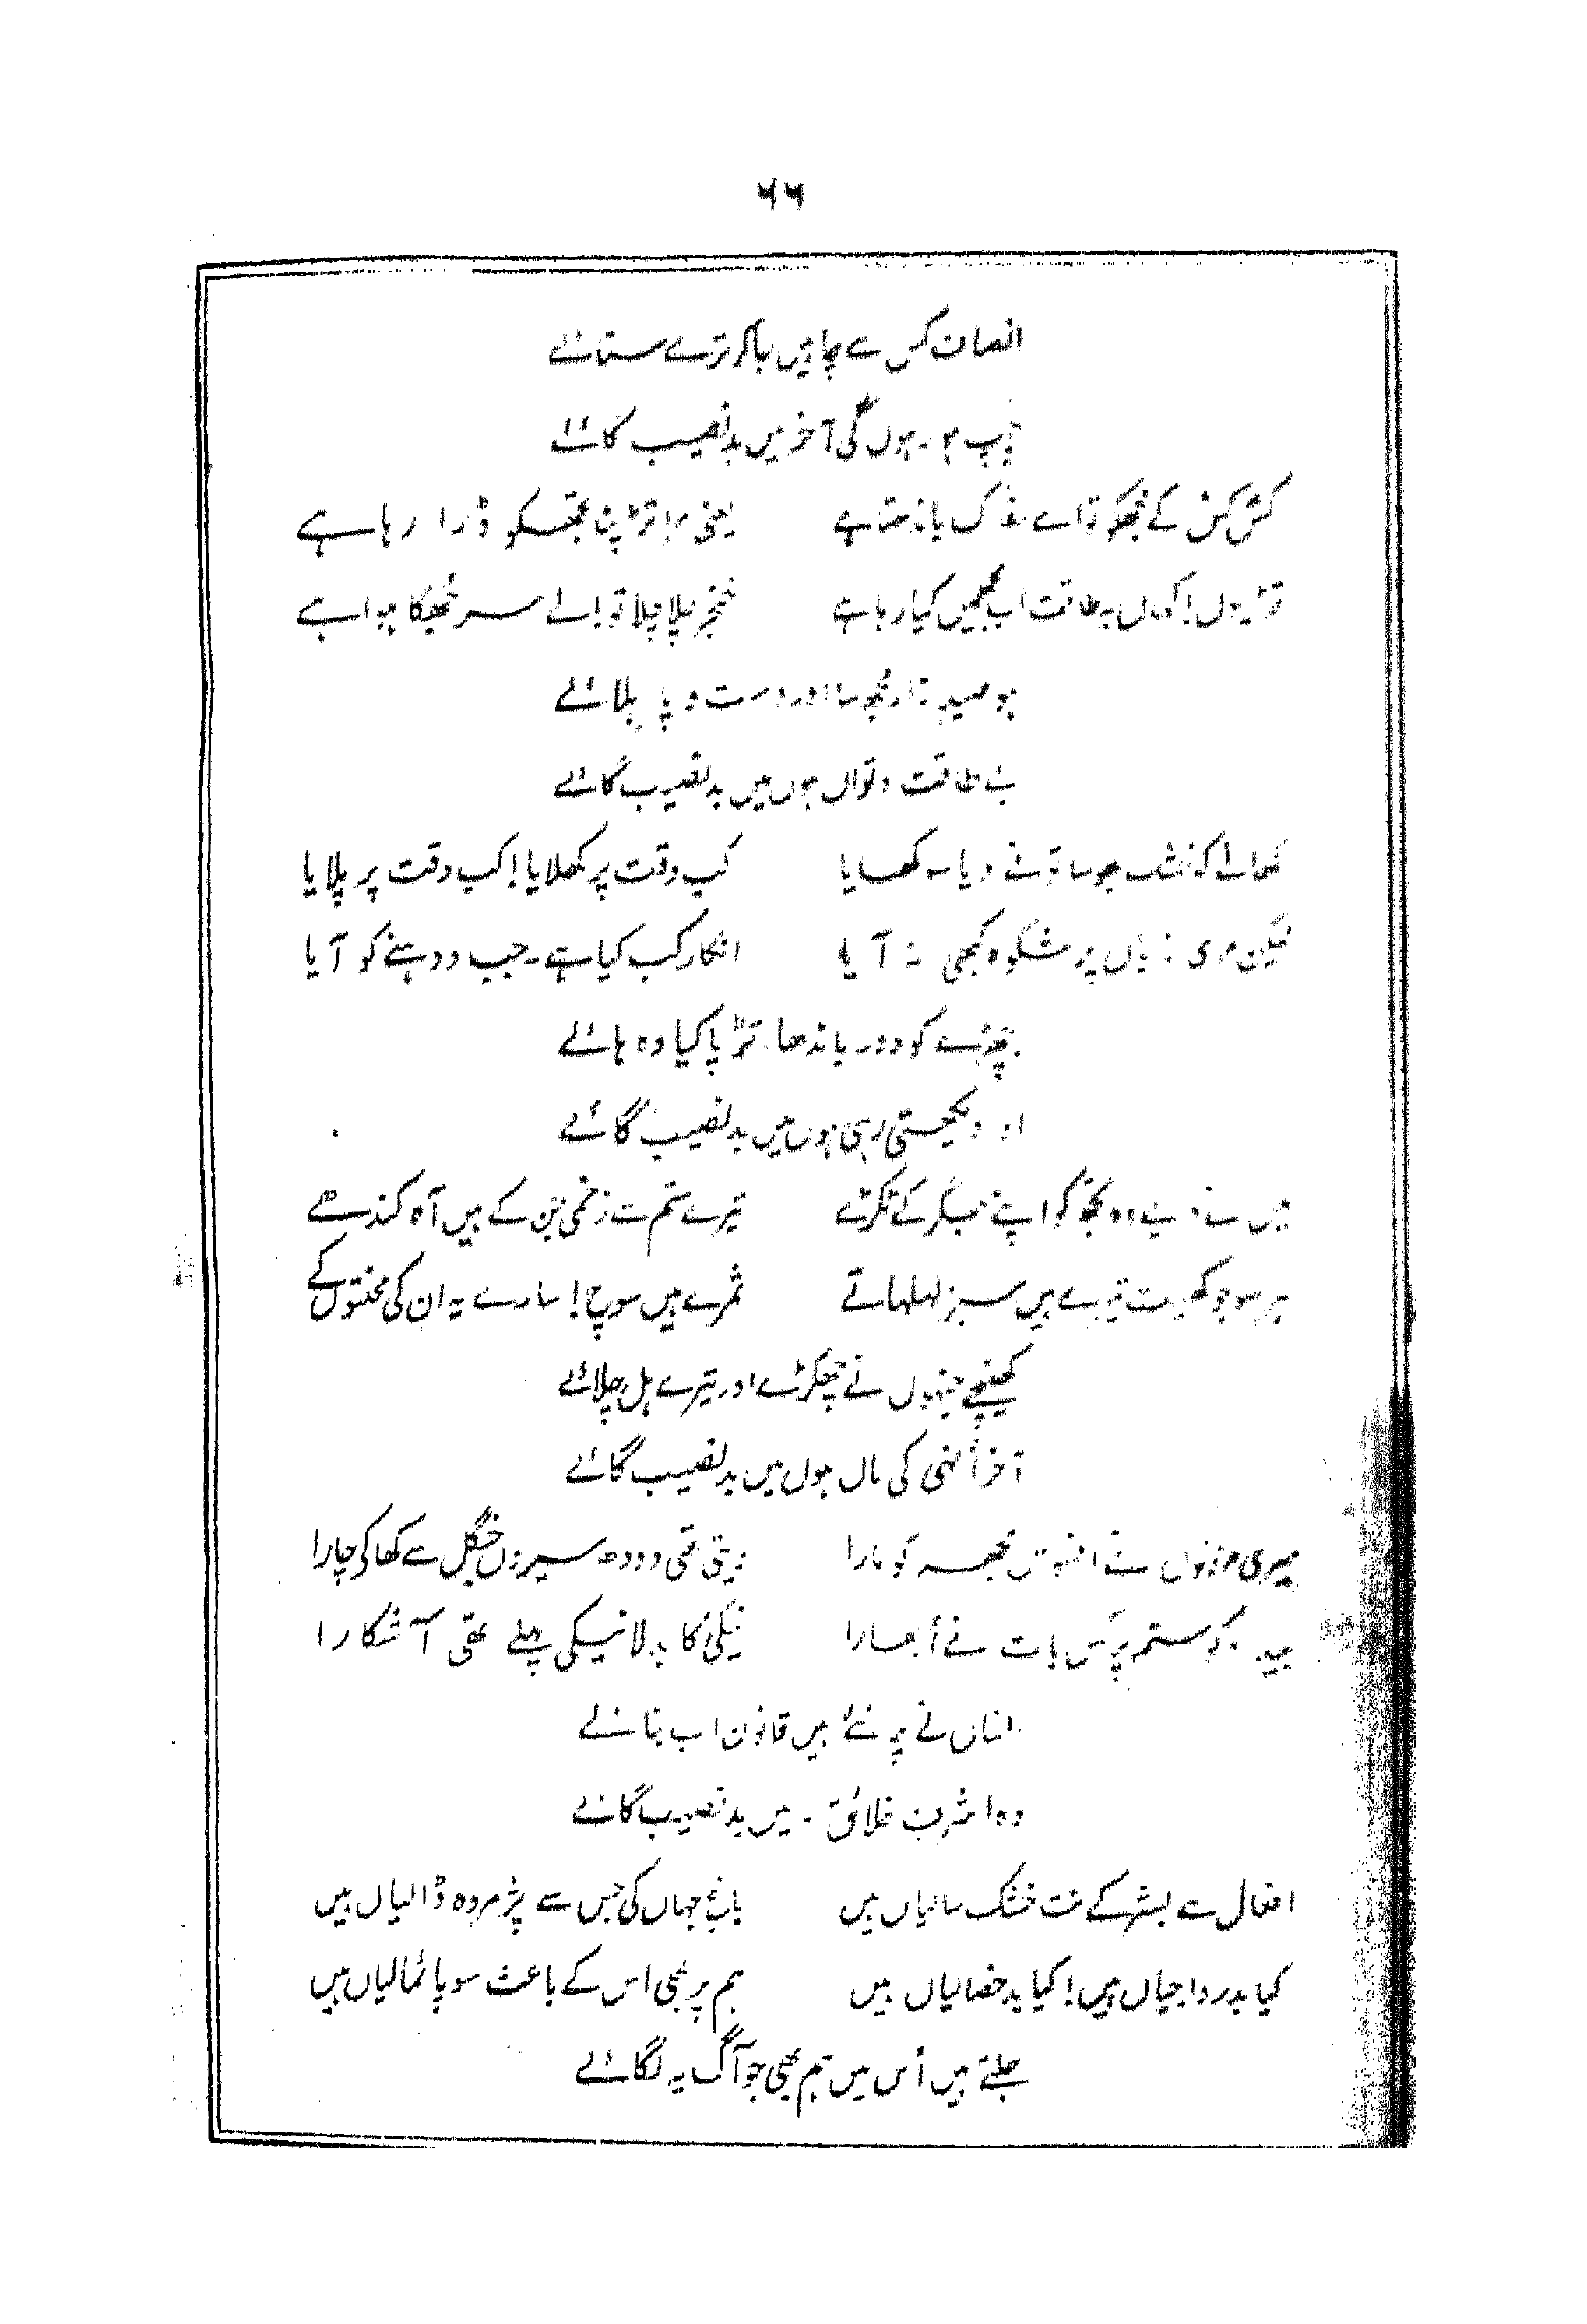 ۶۶
انصاف کس سے چاہیں جاکر ترے ستائے
چپ ہو۔ ہوں گی آخر میں بدنصیب گائے
کس کس کے مجھکو تو اے سفاک باندھتا ہے یعنی مرا تڑپنا تجھکو ڈرا رہا ہے
تڑپوں! کہاں یہ طاقت اب مجھمیں کیا رہا ہے خنجر چلا چلا تو! لے سر جھکا ہوا ہے
ہو صید زار مجھ سا اور دست و پا ہلائے
بے طاقت و تواں ہوں میں بدنصیب گائے
کھانے کو خشک جو سا تو نے دیا سو کھایا کب وقت پر کھلایا! کب وقت پر پلایا
لیکن مری زباں پر شکوہ کبھی نہ آیا انکار کب کیا ہے۔ جب دوہنے کو آیا
بچھڑے کو دور باندھا۔ تڑپا کیا وہ ہائے
اور دیکھتی رہی ہوں میں بدنصیب گائے
میں نے دیے وہ تجھ کو اپنے جگر کے ٹکڑے تیرے ستم سے زخمی جن کے ہیں آہ کندھے
ہر سو جو کھیت تیرے ہیں سبز لہلہاتے ثمرے ہیں سوچ! سارے یہ ان کی محنتوں کے
کھینچے جنہوں نے چھکڑے اور تیرے ہل چلائے
آخر اُنہی کی ماں ہوں میں بدنصیب گائے
میری مروتوں نے افسوس مجھ کو مارا دیتی تھی دودھ سیروں جنگل سے کھا کی چارا
کو ستم پر کس بات نے اُبھارا نیکی کا بدلا نیکی پہلے تھی آشکارا
انساں نے پر نئے ہیں قانون اب بنائے
وہ اشرف خلائق۔ میں بدنصیب گائے
افعال سے بشر کے خشک سالیاں ہیں باغ جہاں کی جس سے پژمردہ ڈالیاں ہیں
کیا بدرواجیاں ہیں! کیا بدخصالیاں ہیں ہم پر بھی اس کے باعث سو پائمالیاں ہیں
جلتے ہیں اُس میں ہم بھی جو آگ یہ لگائے